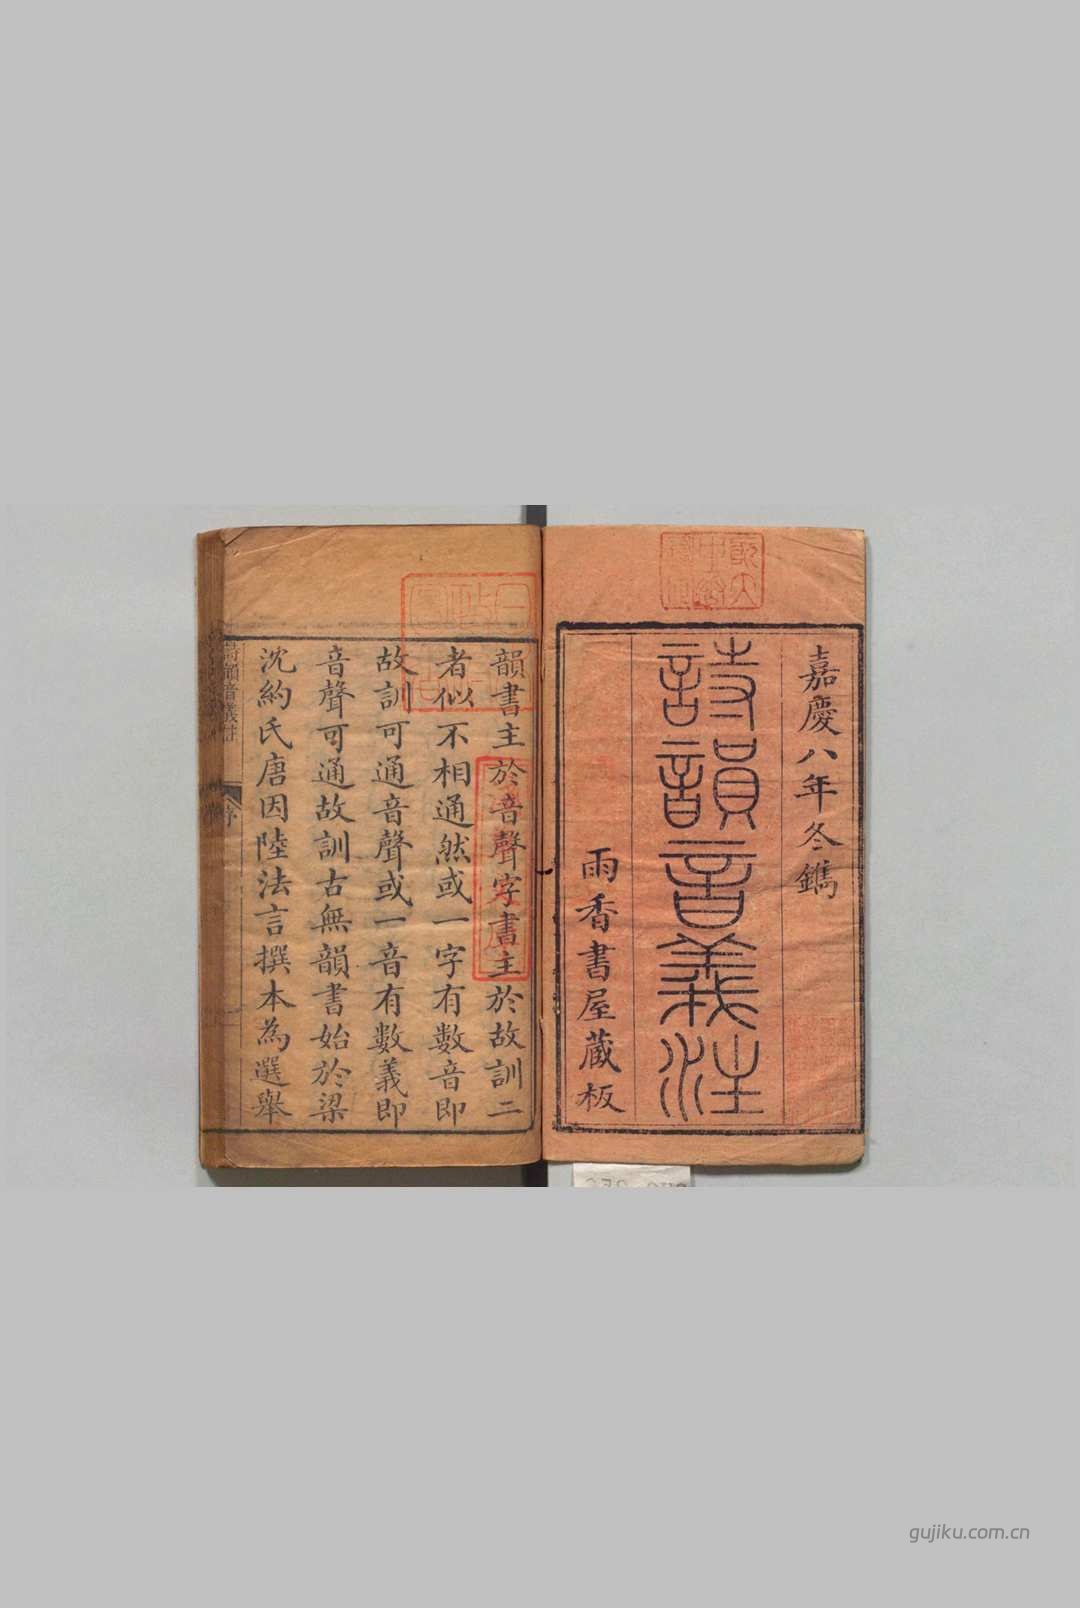 嘉慶八年冬鐫
詩韻音義注
雨香書屋藏板
韻書主於音聲字書主於故訓二
者似不相通然或一字有數音即
故訓可通音聲或一音有數義即
音聲可通故訓古無韻書始於梁
沈約氏唐因陸法言撰本為選舉
詩韻音義註
序
gujiku.com.cn